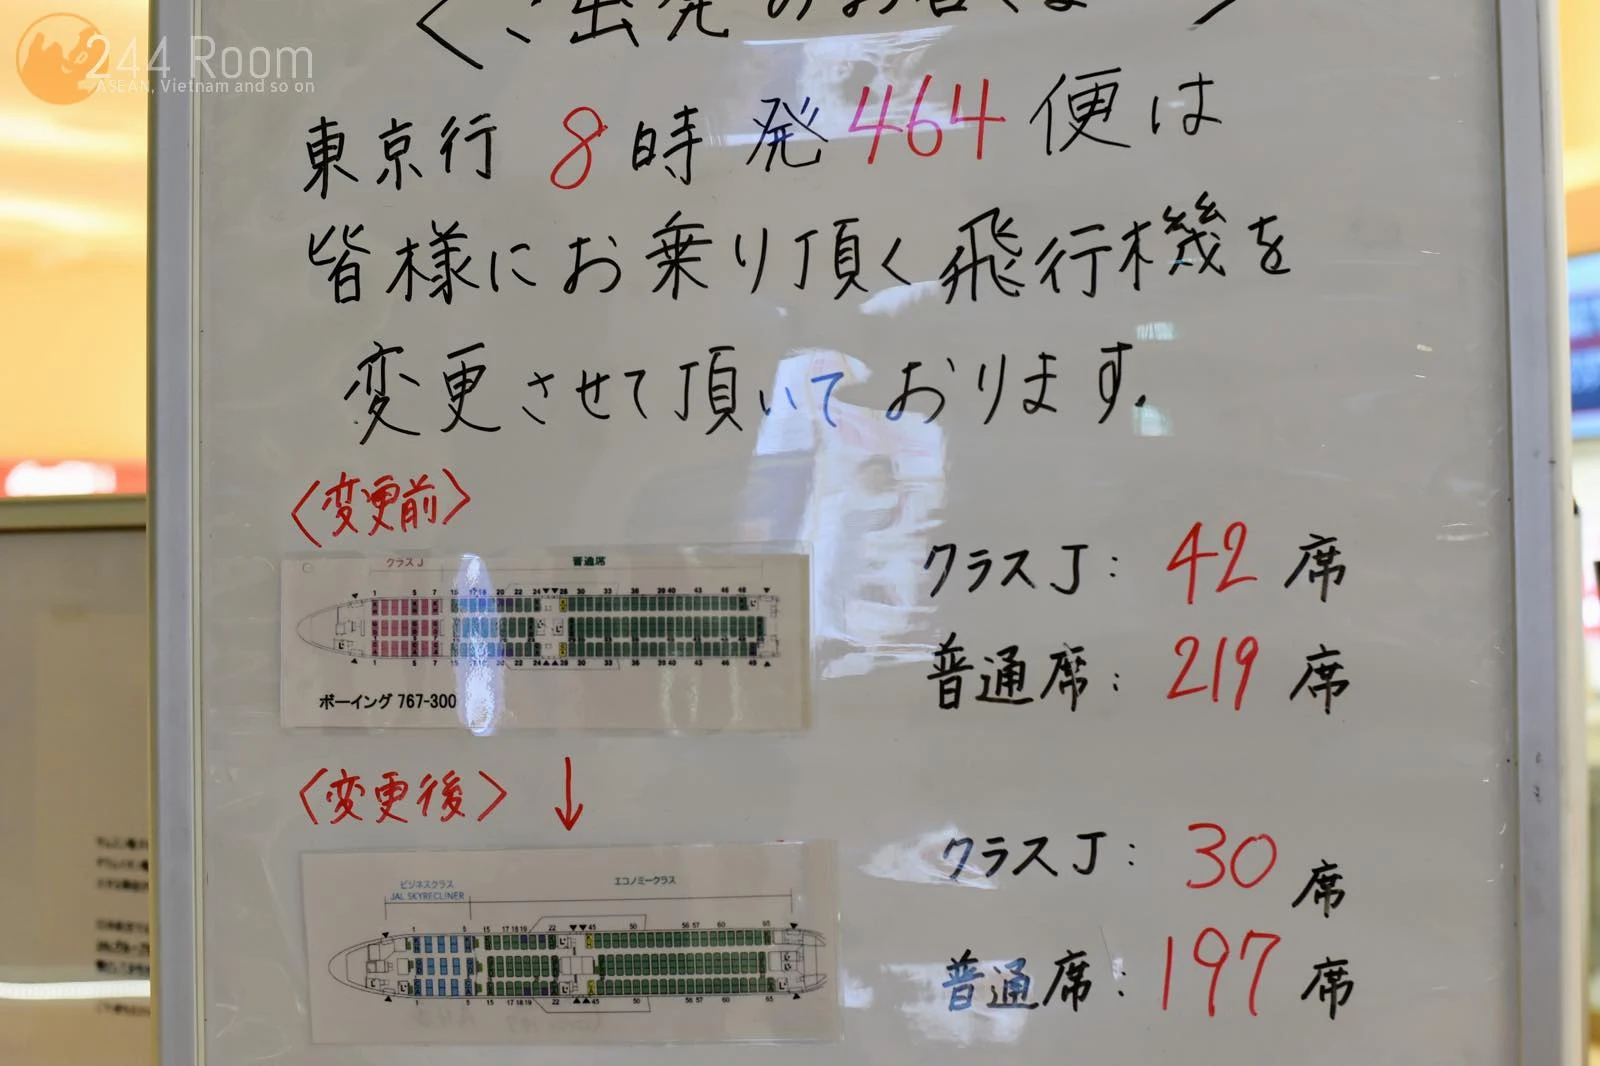 244 Room
ASEAN, Vietnam and so on
東京行 8時発464便は
皆様にお乗り頂く飛行機を
変更させて頂いております.
〈変更前〉
クラスJ 普通席
ボーイング 767-300
クラスJ: 42席
普通席: 219席
〈変更後〉 ↓
ビジネスクラス エコノミークラス
JAL SKYRECLINER
クラスJ: 30席
普通席: 197席